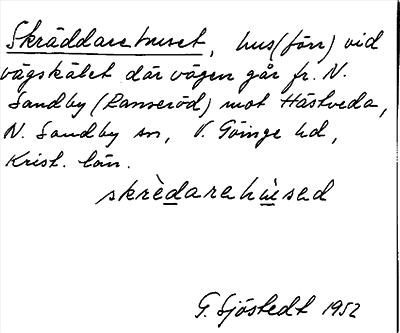 Skräddarehuset, hus (förr) vid
vägskälet där vägen går fr. N.
Sandby (Ranseröd) mot Hästveda,
N. Sandby sn, V. Göinge hd,
Krist. län.
skrèdarehùsed
G. Sjöstedt 1952